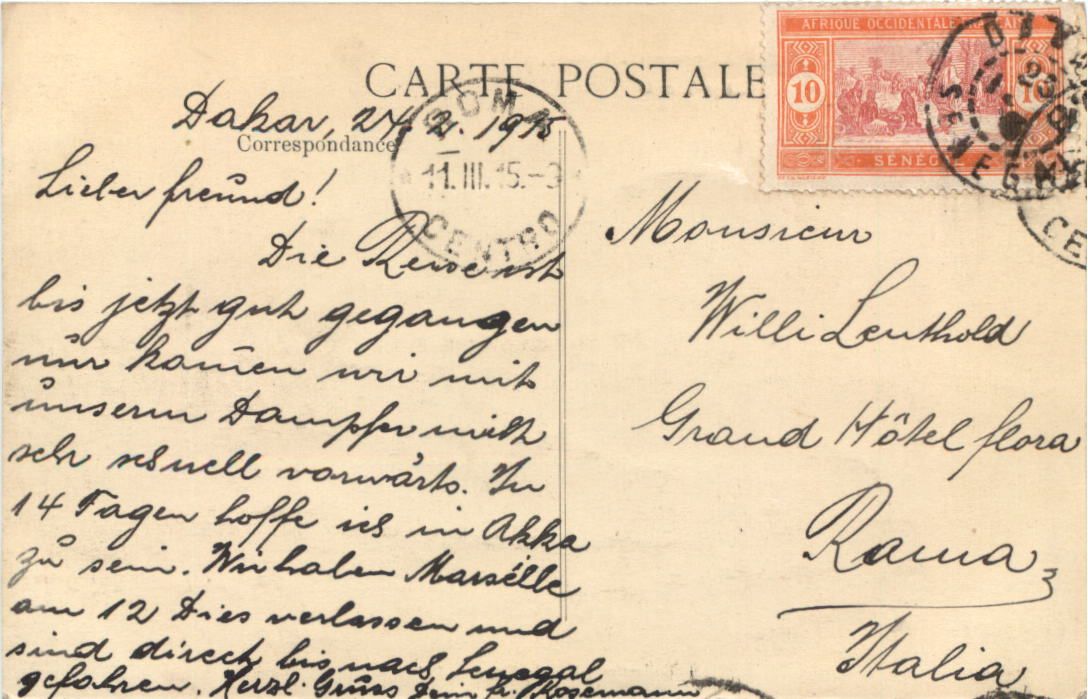 CARTE POSTALE
Correspondance
Dakar, 24. 2. 1915
Lieber Freund!
Die Reise ist
bis jetzt gut gegangen
nur kamen wir mit
unserm Dampfer nicht
sehr schnell vorwärts. In
14 Tagen hoffe ich in Akka
zu sein. Wir haben Marseille
am 12 Dies verlassen und
sind direct bis nach Senegal
gefahren. Herzl. Gruss Dein Fr. Rosemann
ROMA
11.III.15.-9
CENTRO
AFRIQUE OCCIDENTALE FRANÇAISE
10
10
SÉNÉGAL
SENEGAL
CE
Monsieur
Willi Leuthold
Grand Hôtel flora
Roma
Italia